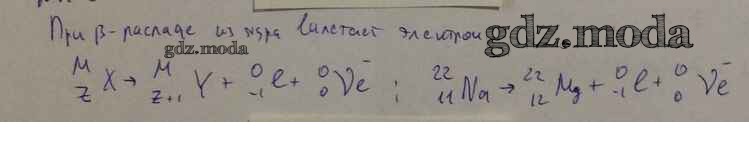 При β-распаде из ядра вылетает электрон
gdz.moda
gdz.moda
M Z X → M Z+1 Y + 0 -1 e + 0 0 νe ; 22 11 Na → 22 12 Mg + 0 -1 e + 0 0 νe